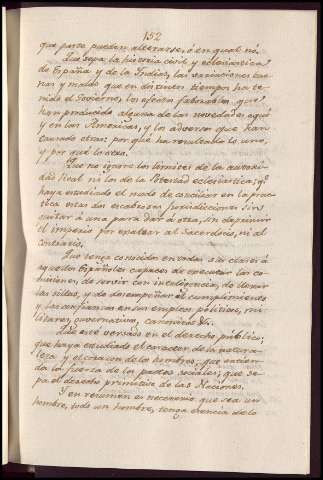 152
que parte pueden alterarse, ó en qual no.
Que sepa la historia civil y eclesiastica
de España y de la Indias, las variaciones bue-
nas y malas que en dos tiempos ha te-
nido el Govierno, los efectos favorables que
han producido algunas de las novedades aqui
y en las Americas, y los adversos que han
causado otras: por qué ha resultado lo uno,
y por qué lo otro.
Que no ignore los terminos de la autori-
dad Real ni los de la Potestad eclesiastica; q.e
haya estudiado el modo de conciliar en la prac-
tica estas dos escabrosas Jurisdicciones sin
quitar á una para dar á otra, sin deprimir
el imperio por exaltar al Sacerdocio, ni al
contrario.
Que tenga conocidos en todas sus clases á
aquellos Españoles capaces de executar las co-
misiones, de servir con inteligencia, de llenar
las sillas, y de desempeñar el cumplimiento
y las confianzas en sus empleos politicos, mi-
litares, governativos, canonicos &c.
Que esté versado en el derecho publico;
que haya estudiado el caracter de la natura-
leza y el corazon de los hombres; que entien-
da la fuerza de los pactos sociales; que se-
pa el derecho primitivo de las Naciones.
Y en resumen es necesario que sea un
hombre, todo un hombre, tenga ciencia de lo